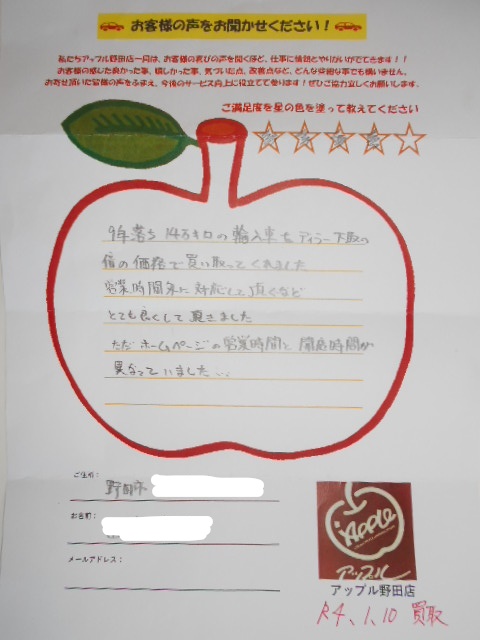 お客様の声をお聞かせください！
私たちアップル野田店一同は、お客様の喜びの声を聞くほど、仕事に情熱とやりがいがでてきます！！
お客様の感じた良かった事、嬉しかった事、気づいた点、改善点など、どんな些細な事でも構いません。
お寄せ頂いた皆様の声をふまえ、今後のサービス向上に役立てて参ります！ぜひご協力宜しくお願いします。
ご満足度を星の色を塗って教えてください
9年落ち 14万キロの輸入車をディーラー下取の
倍の価格で買い取ってくれました
営業時間外に対応して頂くなど
とても良くして頂きました
ただホームページの営業時間と開店時間が
異なっていました...
ご住所：
野田市
お名前：
メールアドレス：
Apple
アップル
アップル野田店
R4、1、10 買取